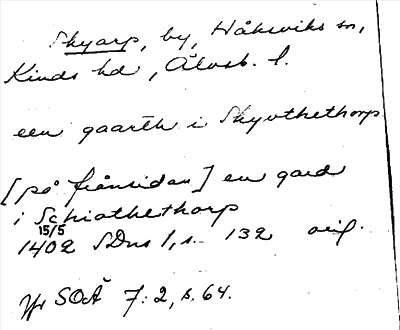 Skyarp, by, Håksviks sn,
Kinds hd, Älvsb. l.
een gaarth i Skyothethorp
[på frånsidan] en gard
i Schiothethorp
15/5
1402 SDns 1, s. 132 orig.
Jfr SOÄ 7:2, s. 64.